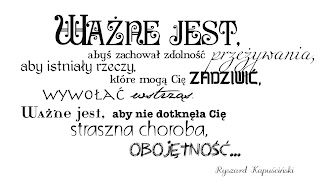 WAŻNE JEST,
abyś zachował zdolność przeżywania,
aby istniały rzeczy,
które mogą Cię ZADZIWIĆ,
WYWOŁAĆ wstrząs.
Ważne jest, aby nie dotknęła Cię
straszna choroba,
OBOJĘTNOŚĆ...
Ryszard Kapuściński